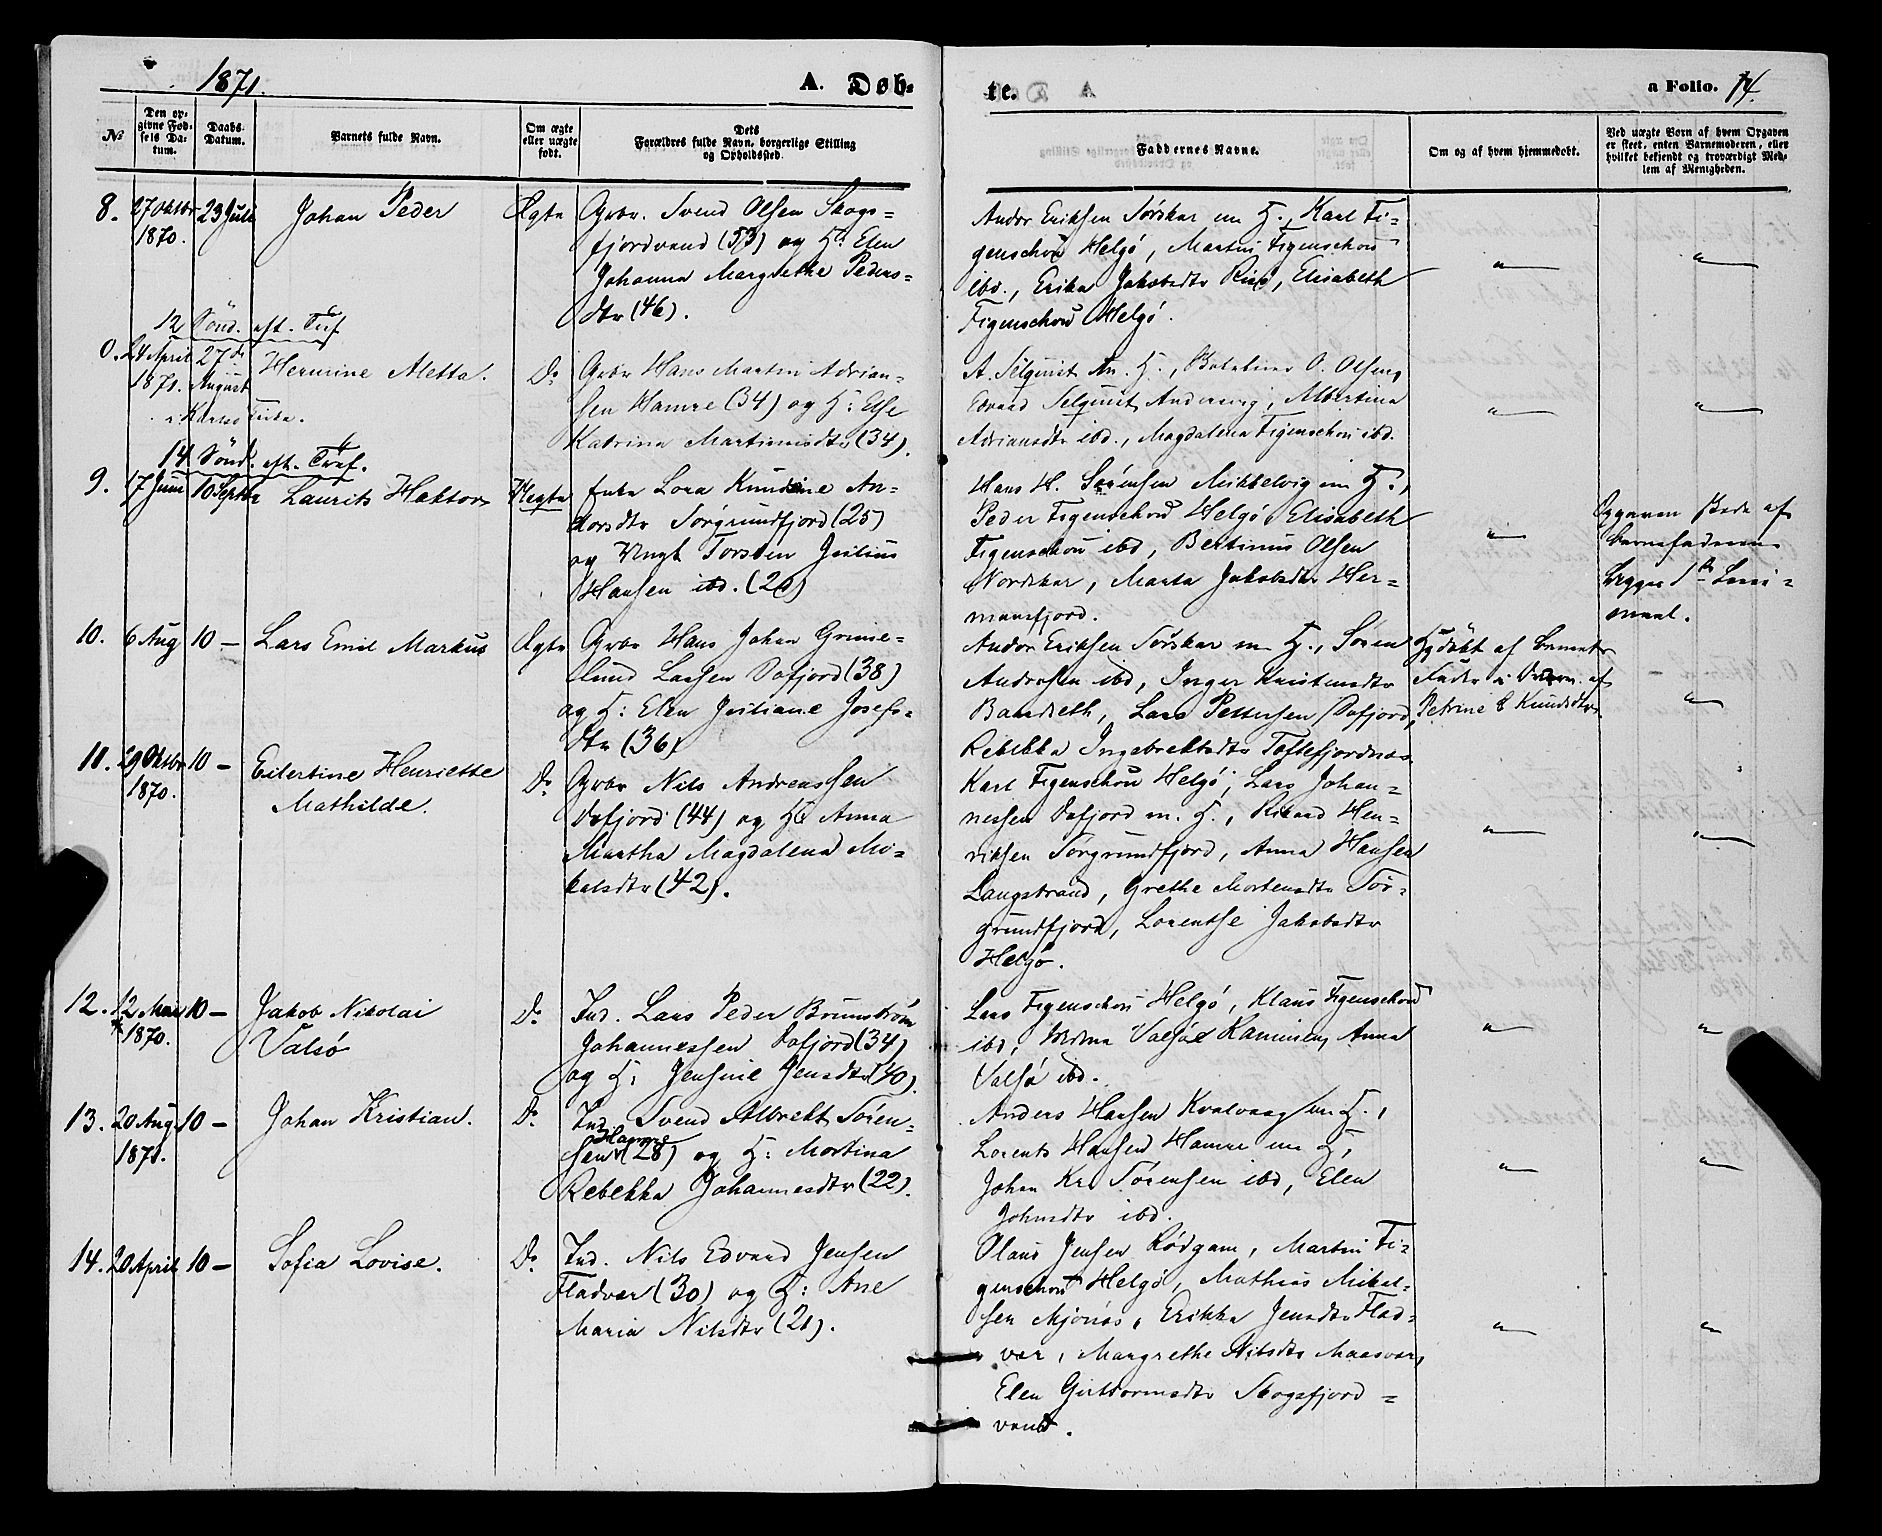 1871.
A. Døb-
te.
a Folio. 14.
No
Den op-
givne Fød-
sels Da-
tum.
Daabs-
Datum.
Barnets fulde Navn.
Om ægte
eller uægte
født.
Dets
Forældres fulde Navn, borgerlige Stilling
og Opholdssted.
Faddernes Navne.
Om og af hvem hjemmedøbt.
Ved uægte Børn af hvem Opgaven
er skeet, enten Barnemoderen, eller
hvilket bekjendt og troværdigt Med-
lem af Menigheden.
8.
27 Oktbr
1870.
23 Juli
Johan Peder
Ægte
Gbr. Svend Olsen Skogs-
fjordvand (53) og H: Elen
Johanna Margrethe Peders-
dtr (46).
Andor Eriksen Sørskar m H., Karl Fi-
genschou Helgø, Martin Figenschou
ibd., Erika Jakobsdtr, Elisabeth
Figenschou Helgø.
"
"
12 Sønd. eft. Tref.
0.
24 April
1871.
27de
August
Hermine Aletta.
Do
Gbr Hans Martin Adrian-
sen Hamre (34) og H: Else
Katrina Martinusdtr (34).
A. Selquist m. H., O. Olsen,
Edvard Selquist, Albertina
Adriansdtr ibd., Magdalena Figenschou ibd.
"
"
i Karlsø Kirke.
14 Sønd. eft. Tref.
9.
17 Juni
10 Septbr
Laurits Haktor
Uægte
Lora Knudsine An-
dorsdtr Sørgrundfjord (25)
og Ungk Torsten Julius
Hansen ibd. (20)
Hans H. Sørensen Mikkelvig m H.,
Peder Figenschou Helgø, Elisabeth
Figenschou ibd, Bertinus Olsen
Nordskar, Marta Jakobsdtr Her-
mansfjord.
"
Opgaven skede af
Barnefaderen
begges 1ste Leier-
maal.
10.
6 Aug
10 —
Lars Emil Markus
Ægte
Gbr Hans Johan Grime-
lund Larsen Dafjord (38)
og H: Elen Juliane Josefs-
dtr (36)
Andor Eriksen Sørskar m H., Søren
Andersen ibd, Inger Kristensdtr
Lars Pettersen Dafjord,
Rebekka Ingebrektsdtr Toftefjordnes
Hjdøbt af Barnets
Fader i Overv. af
Petrine Knudsdtr
"
11.
29 Oktbr
1870.
10 —
Eilertine Henriette
Mathilde.
Do
Gbr Nils Andreassen
Dafjord (44) og H: Anna
Martha Magdalena Mi-
kelsdtr (42).
Karl Figenschou Helgø, Lars Johan-
nessen Dafjord m. H., Rikard Hen-
riksen Sørgrundfjord, Anna Hansen
Langstrand, Grethe Mortensdtr Sør-
grundfjord, Lorentse Jakobsdtr
Helgø.
"
"
12.
12 Mai
1870.
10 —
Jakob Nikolai
Valsø
Do
Ind. Lars Peder Brunstrøm
Johannessen Dafjord (34)
og H: Jensine Jensdtr (40).
Lars Figenschou Helgø, Klaus Figenschou
ibd, Valsøe Anna
Valsø ibd.
"
"
13.
20 Aug
1871.
10 —
Johan Kristian.
Do
Ind. Svend Albrekt Søren-
sen Hamre (28) og H: Mortina
Rebekka Johannesdtr (22).
Anders Hansen Kvalvaag m H.,
Lorents Hansen Hamre m H,
Johan Kr. Sørensen ibd, Elen
Johnsdtr ibd.
"
"
14.
20 April
10 —
Sofia Lovise.
Do
Ind. Nils Edvard Jensen
Fladvær (30) og H: Ane
Maria Nilsdtr (21).
Olaus Jensen Rødgam, Martin Fi-
genschou Helgø, Mathias Mikel-
sen Mjønes, Erikka Jensdtr Flad-
vær, Margrethe Nilsdtr Maasvær,
Elen Guttormsdtr Skogsfjord-
vand.
"
"